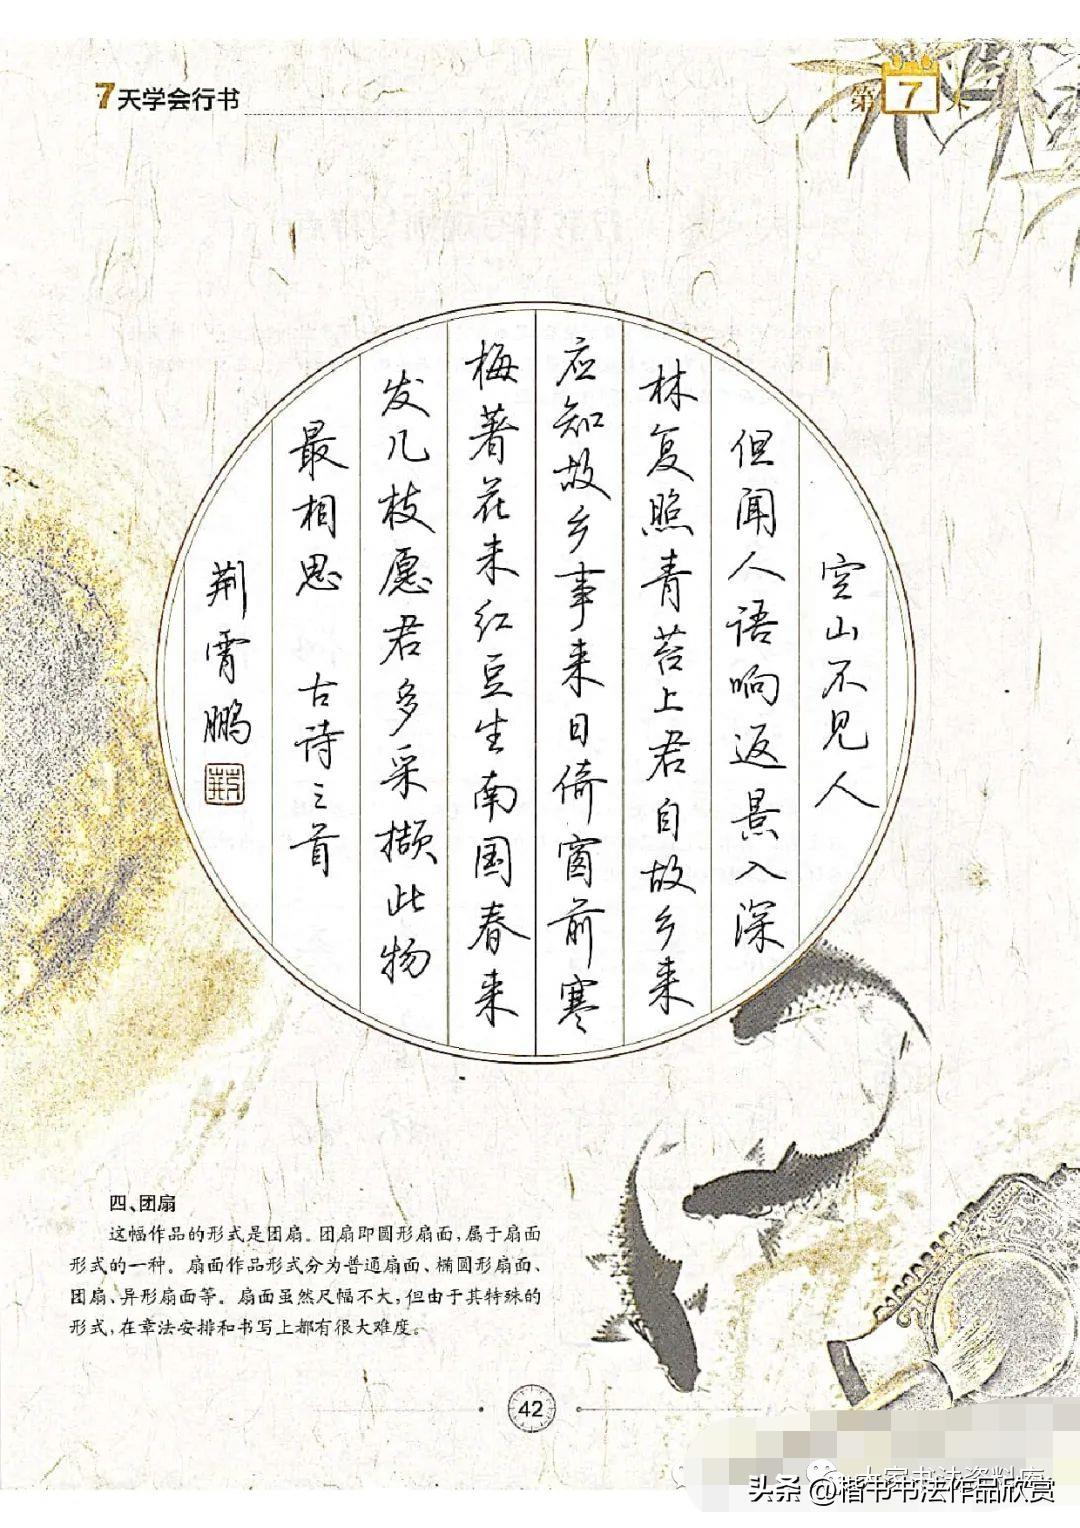 7天学会行书
第7天
空山不见人
但闻人语响返景入深
林复照青苔上君自故乡来
应知故乡事来日倚窗前寒
梅著花未红豆生南国春来
发几枝愿君多采撷此物
最相思 古诗三首
荆霄鹏
四、团扇
这幅作品的形式是团扇。团扇即圆形扇面,属于扇面
形式的一种。扇面作品形式分为普通扇面、椭圆形扇面、
团扇、异形扇面等。扇面虽然尺幅不大,但由于其特殊的
形式,在章法安排和书写上都有很大难度。
42
大家书法资料库
头条 @楷书书法作品欣赏